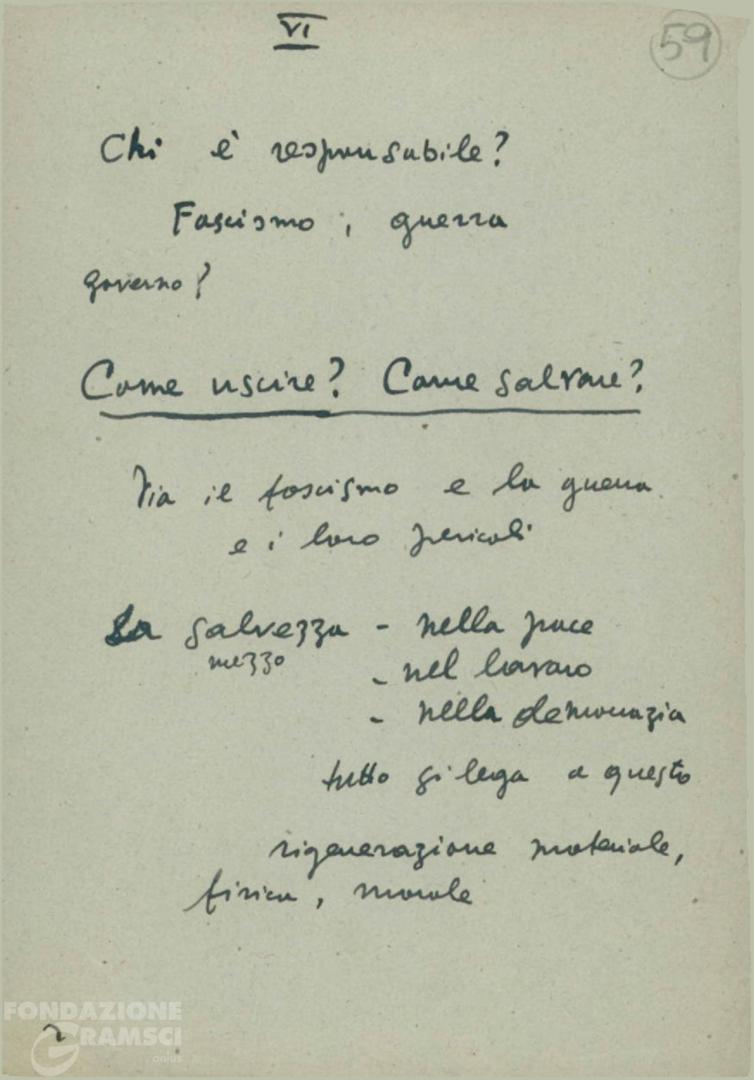 VI
59
Chi è responsabile?
Fascismo, guerra
governo?
Come uscire? Come salvare?
Via il fascismo e la guerra
e i loro pericoli
La salvezza - nella pace
mezzo
- nel lavoro
- nella democrazia
tutto si lega a questo
rigenerazione materiale,
fisica, morale
FONDAZIONE
GRAMSCI
onlus